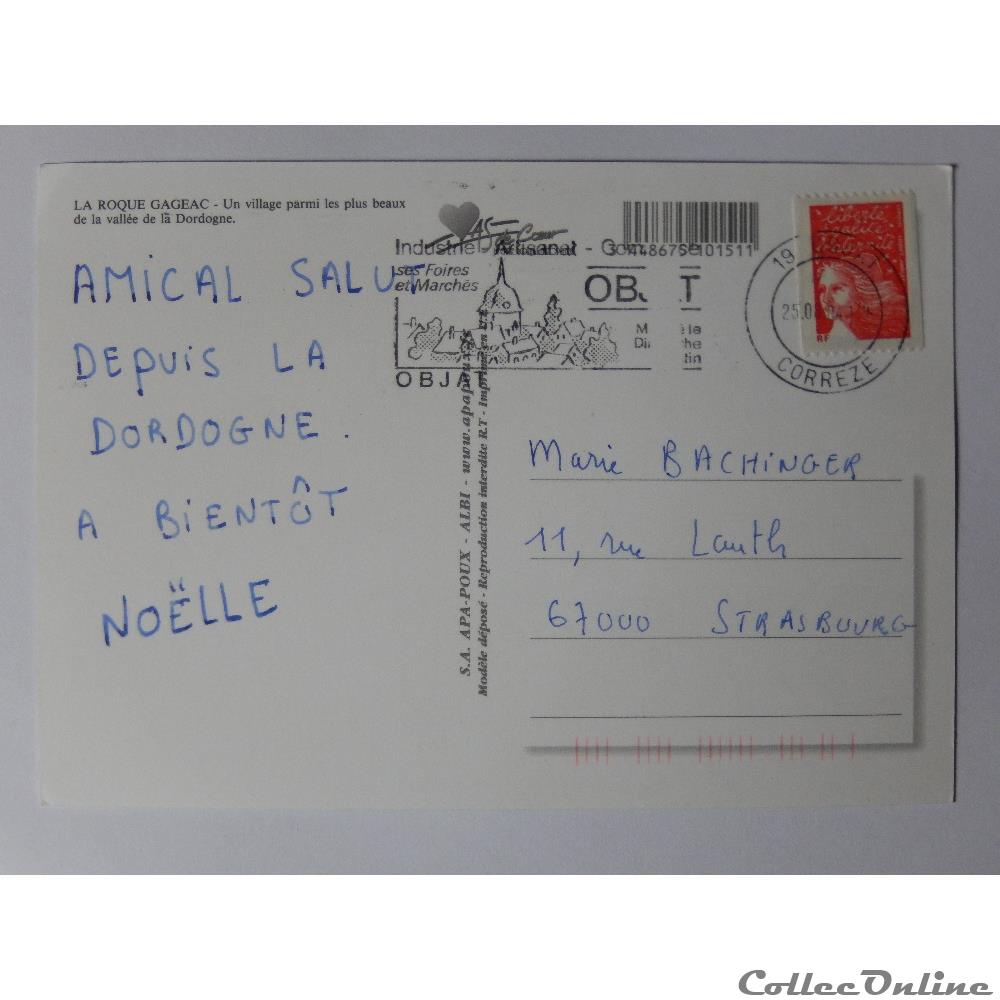 LA ROQUE GAGEAC - Un village parmi les plus beaux
de la vallée de la Dordogne.
AMICAL SALUT
DEPUIS LA
DORDOGNE.
A BIENTÔT
NOËLLE
de Cœur
Industrie Artisanat -
ses Foires
et Marchés
OBJAT
101511
liberté
RF
19
25.0
CORREZE
S.A. APA-POUX - ALBI - www.apapoux
Modèle déposé - Reproduction interdite R.T - Imprimé en
Marie BACHINGER
11, rue Lauth
67000 STRASBOURG
CollecOnline